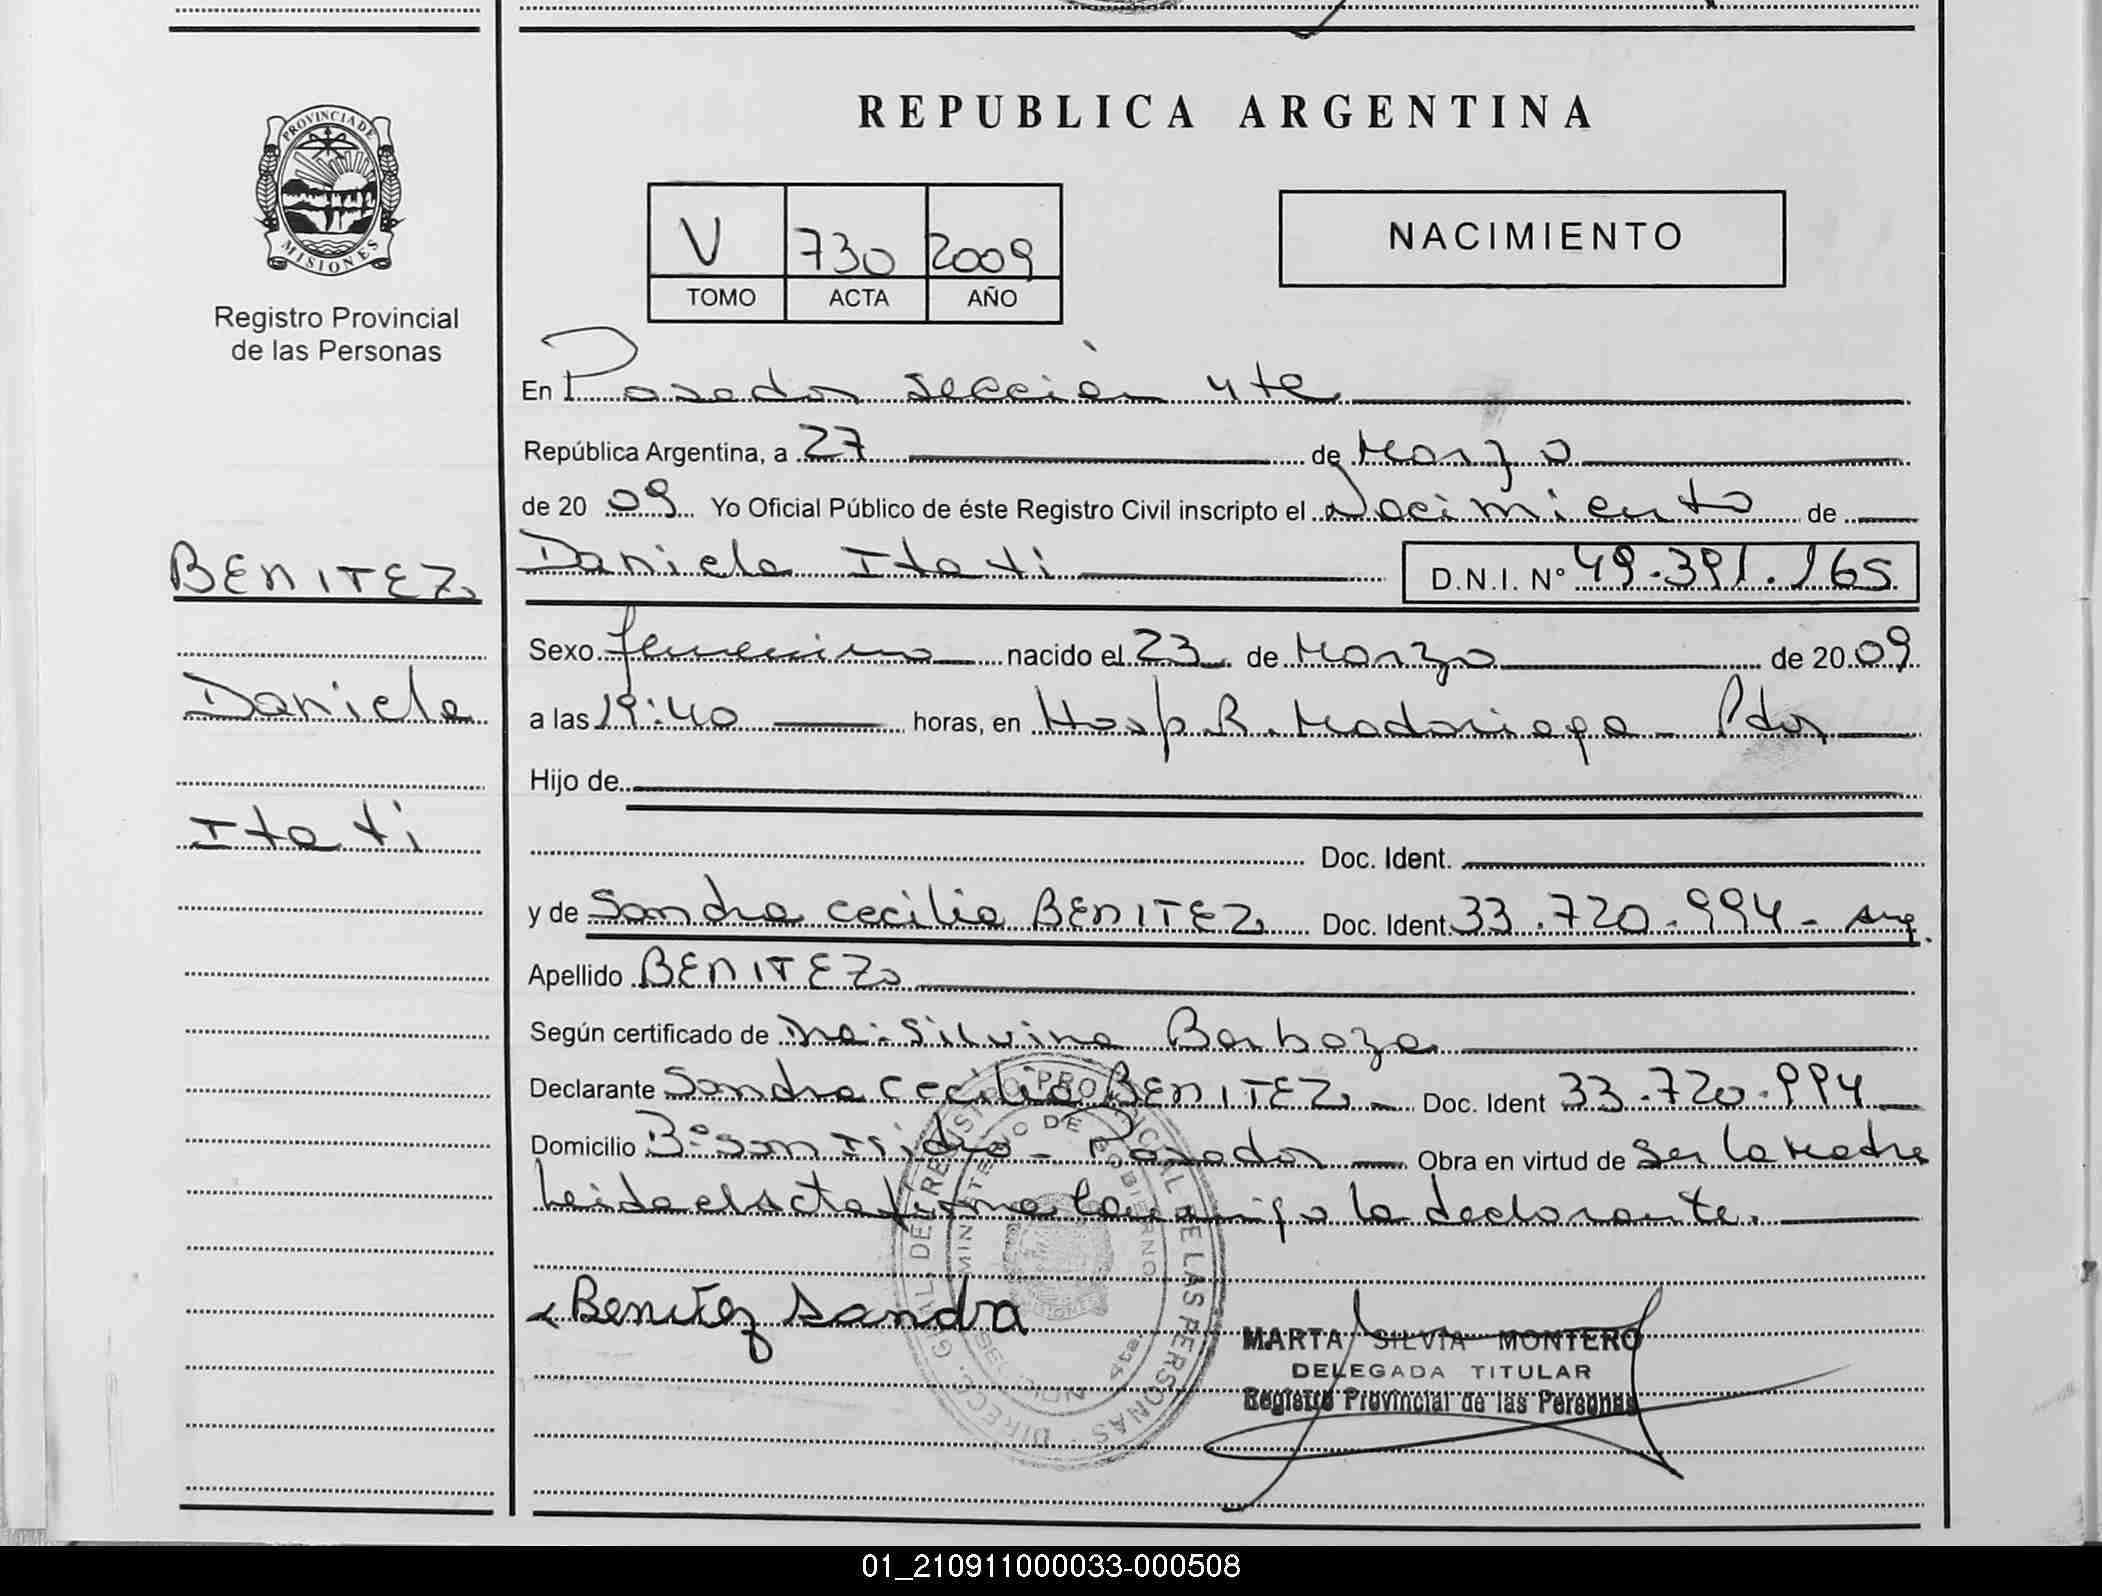 PROVINCIA DE
MISIONES
Registro Provincial
de las Personas
BENITEZ
Daniela
Itati
REPUBLICA ARGENTINA
V 730 2009
TOMO ACTA AÑO
NACIMIENTO
En Posadas sección 4ta
República Argentina, a 27 de Marzo
de 2009 Yo Oficial Público de éste Registro Civil inscripto el Nacimiento de
Daniela Itati D.N.I. Nº 49.391.165
Sexo femenino nacido el 23 de Marzo de 2009
a las 19:40 horas, en Hosp R. Madariaga - Pdas
Hijo de
Doc. Ident.
y de Sandra Cecilia BENITEZ Doc. Ident. 33.720.994 - arg.
Apellido BENITEZ
Según certificado de Dra. Silvina Barboza
Declarante Sandra Cecilia BENITEZ - Doc. Ident 33.720.994
Domicilio Bº San Isidro - Posadas Obra en virtud de ser la Madre
Leida el acta firma conmigo la declarante.
Benitez Sandra
DIRECC. GRAL. DEL REGISTRO PROVINCIAL DE LAS PERSONAS
MINISTERIO DE GOBIERNO
SECCION 4ta.
MISIONES
MARTA SILVIA MONTERO
DELEGADA TITULAR
Registro Provincial de las Personas
01_210911000033-000508